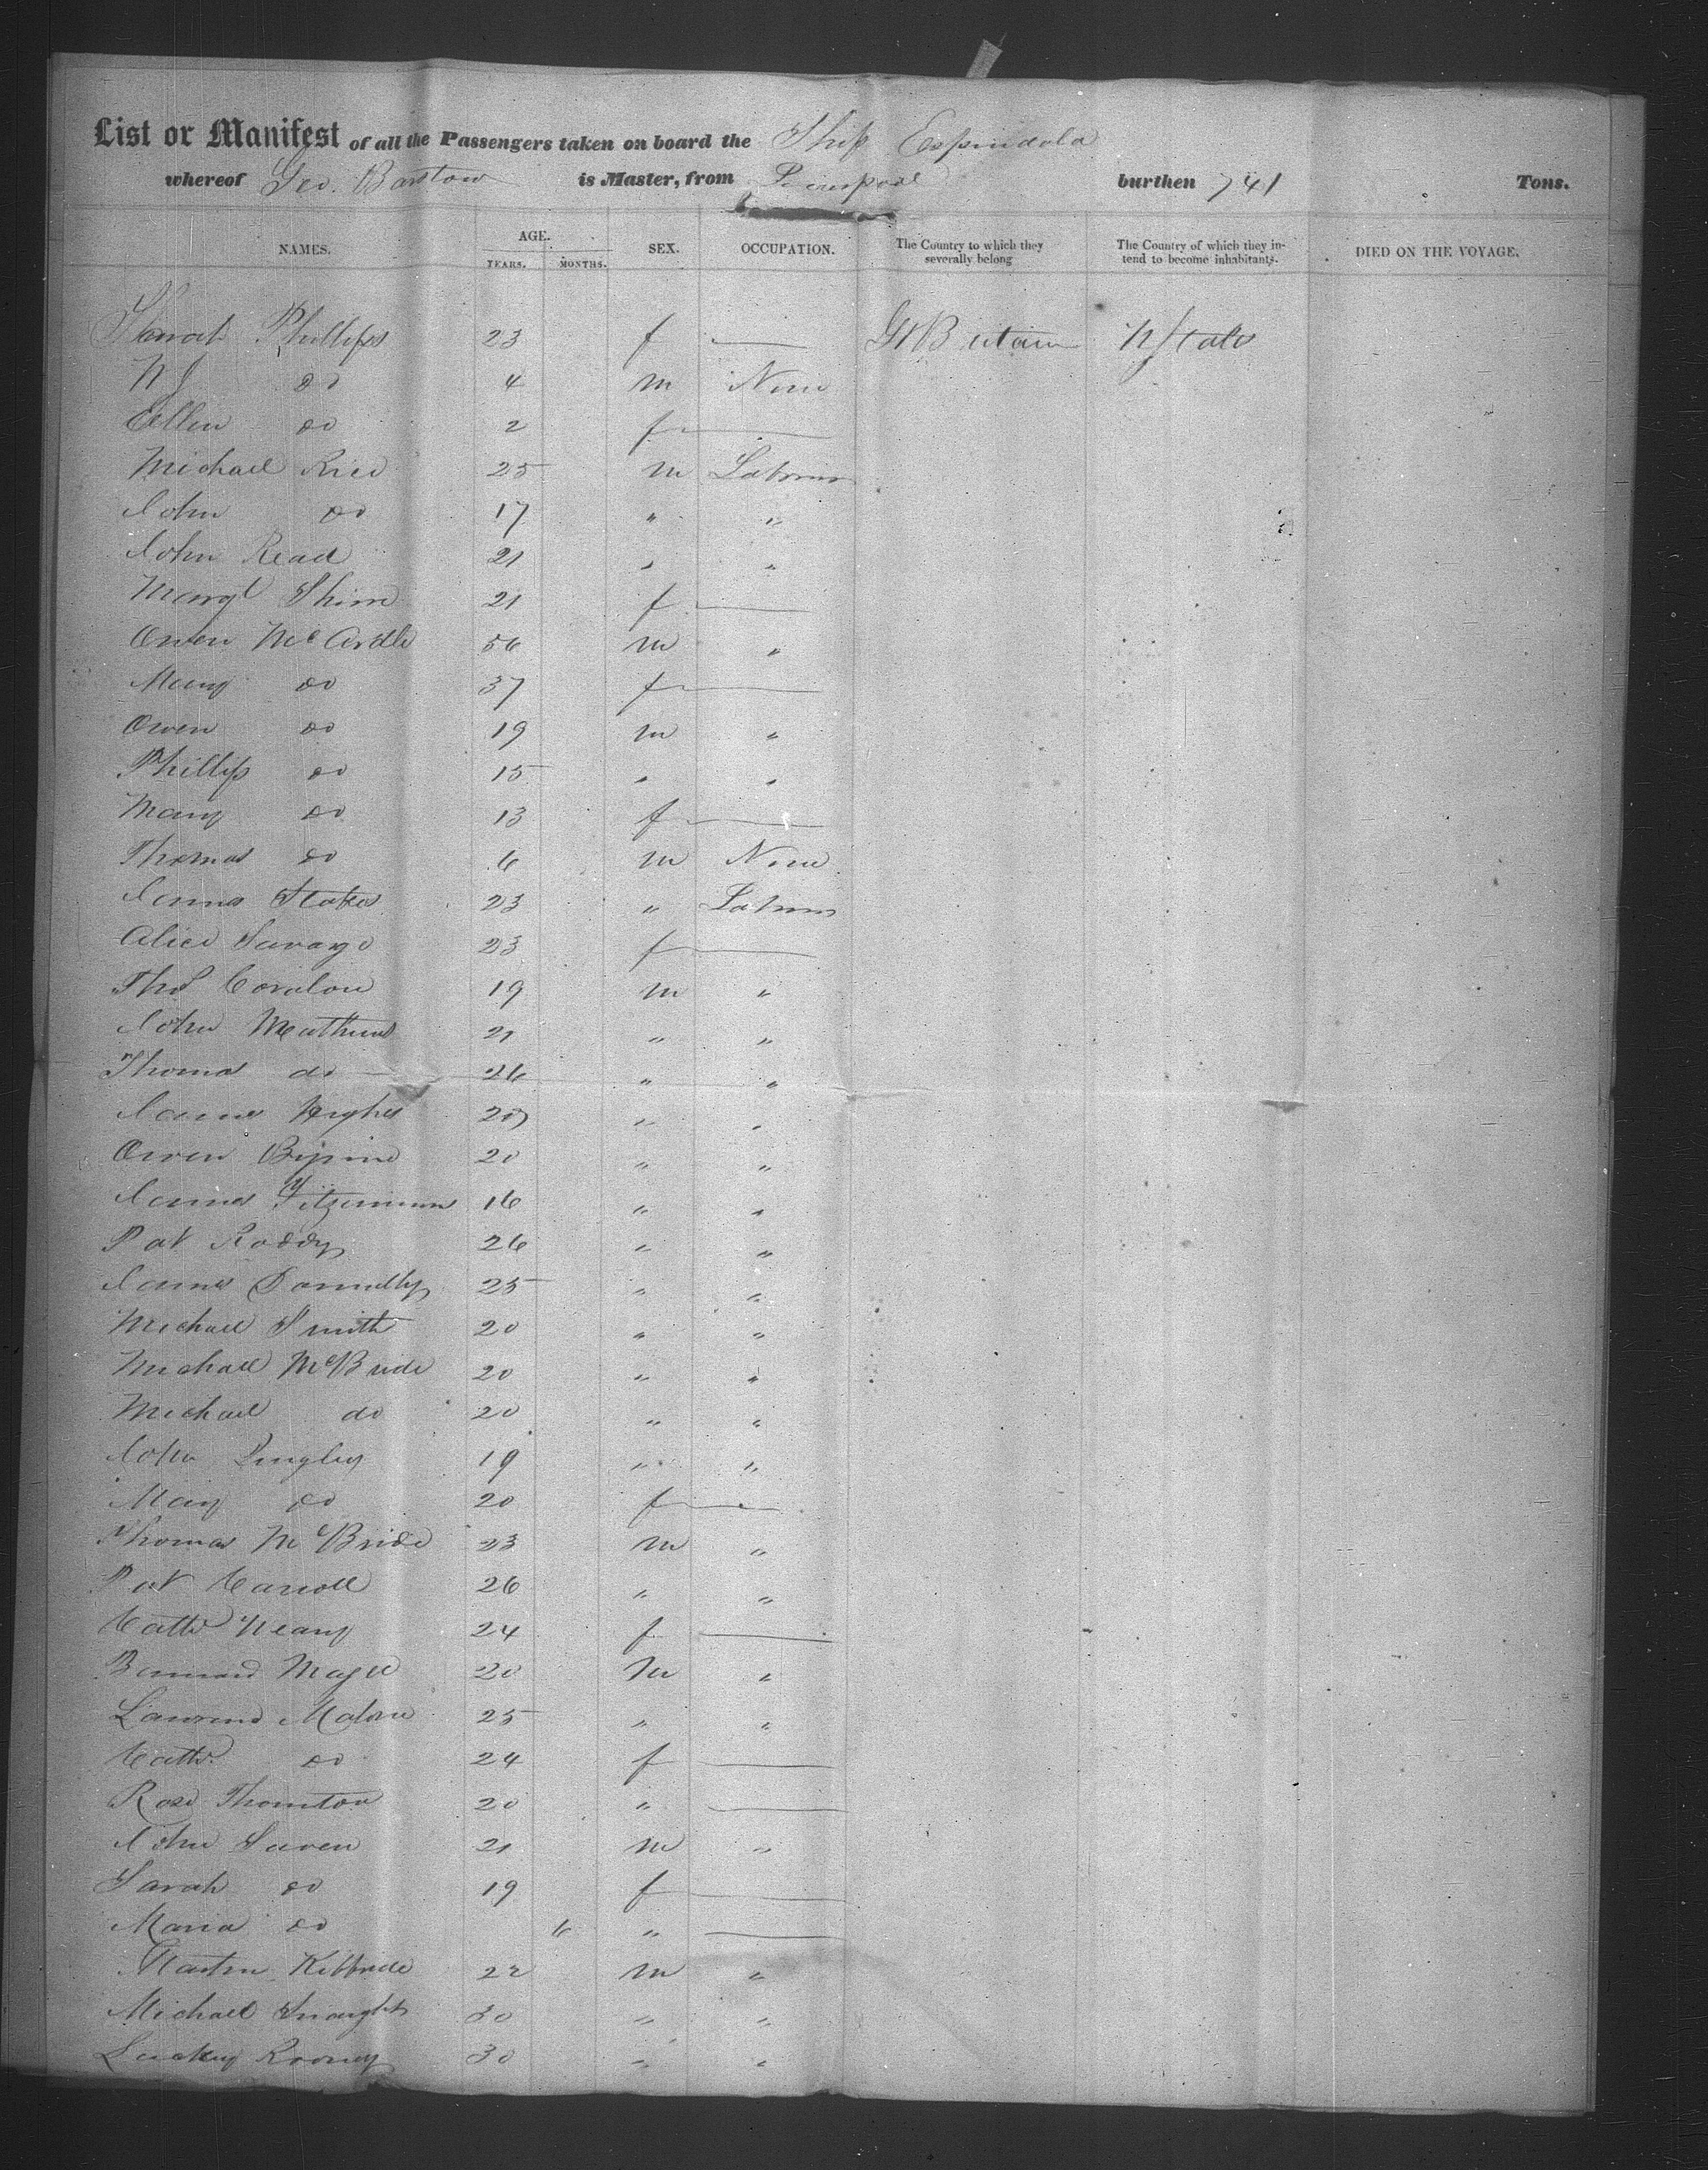 List or Manifest of all the Passengers taken on board the Ship Espindola
whereof Geo. Barstow is Master, from Liverpool burthen 741 Tons.
NAMES. AGE. YEARS. MONTHS. SEX. OCCUPATION. The Country to which they severally belong The Country of which they intend to become inhabitants. DIED ON THE VOYAGE.
Sarah Phillips 23 f — Gt Britain U States
do 4 m None
Ellen do 2 f —
Michael Rice 25 m Laborer
John do 17 " "
John Read 21 " "
Margt 21 f —
Owen McArdle 56 m "
Mary do 37 f —
Owen do 19 m "
Phillip do 15 " "
Mary do 13 f —
Thomas do 6 m None
James 23 " Laborer
Alice Savage 23 f —
Thos 19 m "
John Mathews 21 " "
Thomas do 26 " "
James Hughes 20 " "
Owen 20 " "
James Fitzimmons 16 " "
Pat Roddy 26 " "
James Donnelly 25 " "
Michael Smith 20 " "
Michael McBride 20 " "
Michael do 20 " "
John 19 " "
Mary do 20 f —
Thomas McBride 23 m "
Pat Carroll 26 " "
Cathe 24 f —
Bernard Magee 20 m "
Lawrence Malone 25 " "
Cathe do 24 f —
Rose Thornton 20 " —
John Saven 21 m "
Sarah do 19 f —
Maria do 6 " —
Martin Kilbride 22 m "
Michael 30 " "
Rooney 30 " "